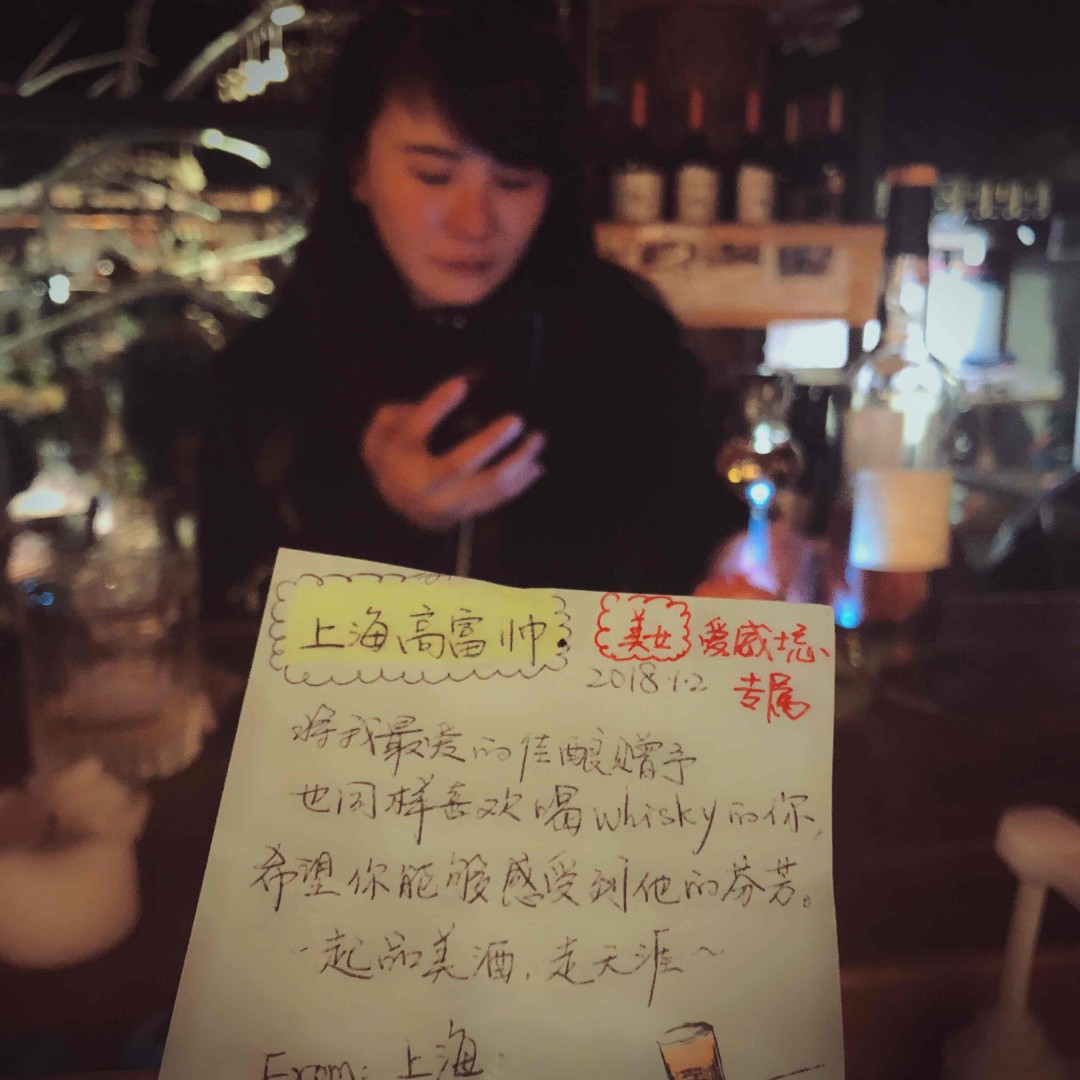 上海高富帅.
美女 爱威忌
2018.1.2 专属
将我最爱的佳酿赠予
也同样喜欢喝whisky的你,
希望你能够感受到他的芬芳。
一起品美酒,走天涯~
From: 上海